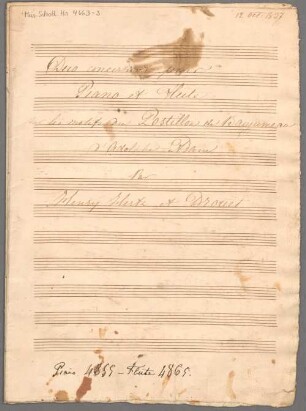 Mus. Schott. Ha 4863-3
12 Oct 1837
Duo concertant pour
Piano et Flûte
sur les motifs du Postillon de Lonjumeau
d'Adolphe Adam
Par
Henry Herz et Drouet
Piano 4855 – Flute 4865.